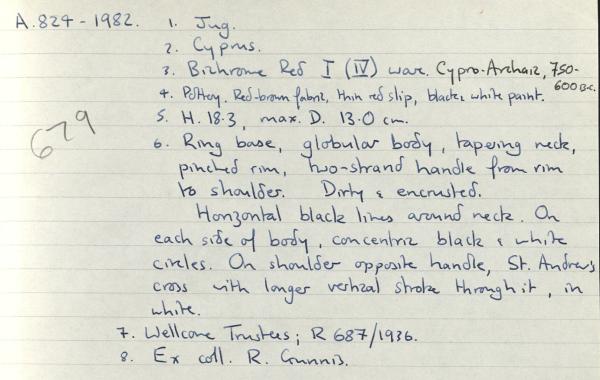 A.824-1982. 1. Jug.
2. Cyprus.
3. Bichrome Red I (IV) ware. Cypro-Archaic, 750-
600 B.C.
4. Pottery. Red-brown fabric, thin red slip, black & white paint.
5. H. 18.3, max. D. 13.0 cm.
679
6. Ring base, globular body, tapering neck,
pinched rim, two-strand handle from rim
to shoulder. Dirty & encrusted.
Horizontal black lines around neck. On
each side of body, concentric black & white
circles. On shoulder opposite handle, St. Andrew's
cross with longer vertical stroke through it, in
white.
7. Wellcome Trustees; R 687/1936.
8. Ex coll. R. Gunnis.